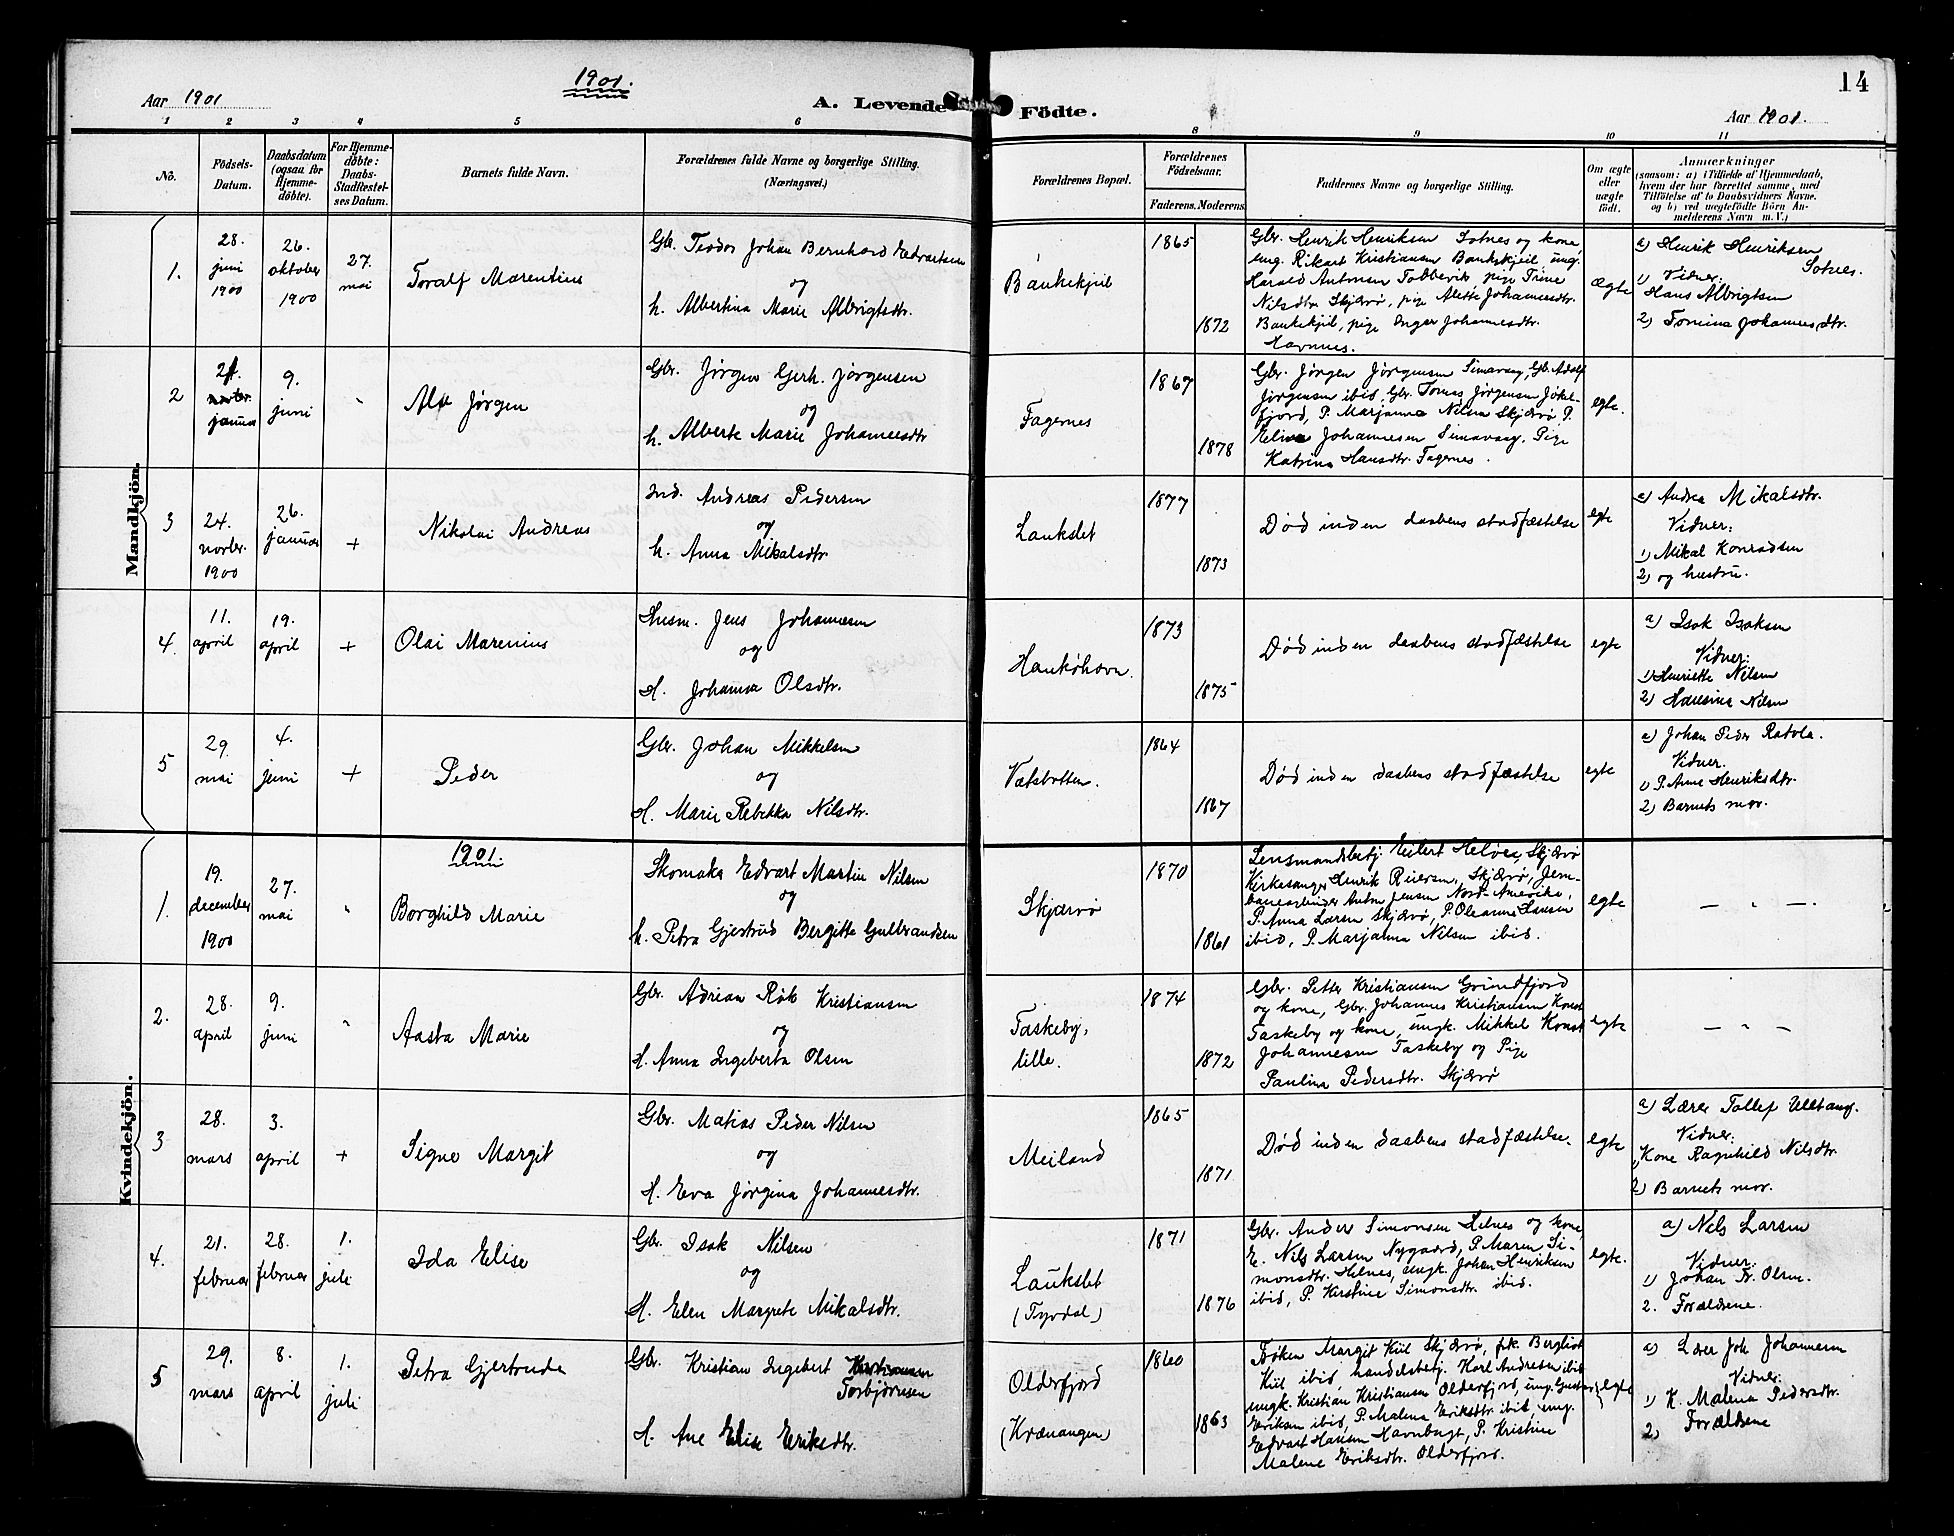 Aar 1901
1901.
A. Levende Födte.
14
Aar 1901.
1 2 3 4 5 6 8 9 10 11
No.
Födsels-
Datum.
Daabsdatum
(ogsaa for
Hjemme-
döbte).
For Hjemme-
döbte:
Daabs-
Stadfæstel-
ses Datum.
Barnets fulde Navn.
Forældrenes fulde Navne og borgerlige Stilling.
(Næringsvei.)
Forældrenes Bopæl.
Forældrenes
Födselsaar.
Faderens. Moderens.
Faddernes Navne og borgerlige Stilling.
Om ægte
eller
uægte
født.
Anmærkninger
(saasom: a) i Tilfælde af Hjemmedaab,
hvem der har forrettet samme, med
Tilföielse af to Daabsvidners Navne.
og b) ved uægtefödte Börn An-
melderens Navn m.V.)
Mandkjön.
1.
28.
juni
1900
26.
oktober
1900
27.
mai
Toralf Marentius
Gbr. Teodor Johan Bernhard Edvartsen
og
h. Albertina Marie Albrigtsdtr.
Bankekjeil
1865
1872
Gbr. Henrik Henriksen Sotnes og kone
ung. Rikart Kristiansen Bankekjeil ung.
Harald Antonsen Tobbevik pige Trine
Nilsdtr Skjærvø, pige Alette Johannesdtr.
Bankekjeil, pige Inger Johannesdtr.
Havnnes.
ægte
a) Henrik Henriksen
Sotnes.
1) Vidner:
Hans Albrigtsen
2) Tomina Johannesdtr.
2
januar
9.
juni
"
Alf Jørgen
Gbr. Jørgen Gerh. Jørgensen
og
h. Alberte Marie Johannesdtr
Fagernes
1867
1878
Gbr. Jørgen Jørgensen Simavaag, Gbr. Adolf
Jørgensen ibid, Gbr. Tomas Jørgensen Jøkel-
fjord, P. Marjanna Nilsen Skjærvø P.
Eline Johannesen Simavaag. Pige
Katrine Hansdtr. Fagernes.
egte.
3
24.
novbr.
1900
26.
januar
+
Nikolai Andreas
Ind. Andreas Pedersen
og
h. Anna Mikalsdtr
Laukslet
1877
1873
Død inden daabens stadfæstelse
egte
a) Andrea Mikalsdtr.
Vidner:
1) Mikal Konradsen
2) og hustru.
4.
11.
april
19.
april
+
Olai Marenius
Husm. Jens Johannesen
og
H. Johanna Olsdtr.
Haukøhavn.
1873
1875
Død inden daabens stadfæstelse
egte
a) Isak Isaksen
Vidner:
1) Henriette Nilsen
2) Hansine Nilsen
5
29.
mai
4.
juni
+
Peder
Gbr. Johan Mikkelsen
og
H. Marie Rebekka Nilsdtr.
Vatsbotten.
1864
1867
Død inden daabens stadfæstelse
egte
a) Johan Peder Ratvla.
Vidner.
1) P. Anne Henriksdtr.
2) Barnets mor.
Kvindekjön.
1901.
1.
19.
december
1900
27.
mai
"
Borghild Marie
Skomaker Edvart Martin Nilsen
og
h. Petra Gjertrud Bergitte Gulbrandsen
Skjærvø
1870
1861
Lensmandsbetj Eilert Heløe, Skjærvø
Kirkesanger Henrik Reiersen, Skjærvø, Jern-
banearbeider Anton Jensen Nord-Amerika,
P. Anna Larsen Skjærvø, P. Oleanna Hansen
ibid, P. Marjanna Nilsen ibid.
egte
— " —.
2.
28.
april
9.
juni
"
Aasta Marie
Gbr. Adrian Røk Kristiansen
og
H. Anna Ingeberta Olsen
Taskeby,
lille.
1874
1872
Gbr. Petter Kristiansen Grundfjord
og kone, Gbr. Johannes Kristiansen Konst
Taskeby og kone, ungk. Mikkel Konst
Johannesen Taskeby og Pige
Pauline Pedersdtr. Skjærvø
egte
— " —
3
28.
mars
3.
april
+
Signe Margit
Gbr. Matias Peder Nilsen
og
H. Eva Jørgina Johannesdtr.
Meiland
1865
1871
Død inden daabens stadfæstelse.
egte
a) Lærer Tollef Ulltang.
Vidner:
1) Kone Ragnhild Nilsdtr.
2) Barnets mor.
4.
21.
februar
28.
februar
1.
juli
Ida Elise
Gbr. Isak Nilsen
og
H. Elen Margrete Mikalsdtr.
Laukslet
(Tyvdal)
1871
1876
Gbr. Anders Simonsen Helnes og kone,
E. Nils Larsen Nygaard, P. Maren Si-
monsdtr. Helnes, ungk. Johan Henriksen
ibid, P. Kirstine Simonsdtr. ibid.
egte.
a) Nels Larsen
Vidner:
1) Johan Fr. Olsen.
2. Forældrene.
5
29.
mars
8.
april
1.
juli
Petra Gjertrude
Gbr. Kristian Ingebert Kristiansen
Torbjørnsen
H. Ane Elise Eriksdtr.
Olderfjord
(Kvænangen)
1860
1863
Frøken Margit Kiil Skjærvø, frk. Bergliot
Kiil ibid, handelsbetj. Karl Andresen ibid
ungk. Kristian Kristiansen Olderfjord, ung. Gustav
Eriksen ibid, P. Malena Eriksdtr. ibid ung.
Edvart Hansen Havnbugt, P. Kristine
Malene Eriksdtr. Olderfjord.
egte
a) Lærer Joh Johannesen
Vidner:
1) K. Malena Pedersdtr.
2) Forældrene